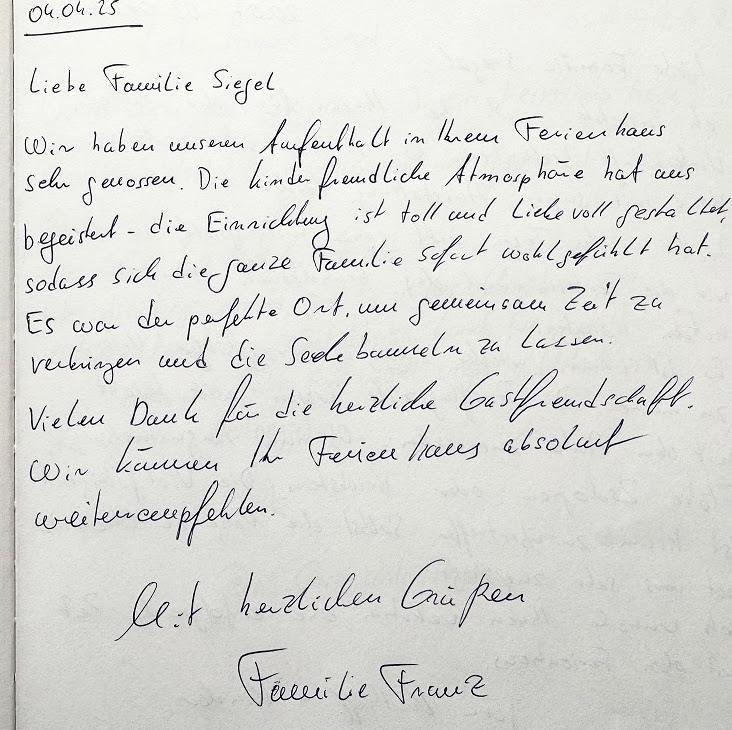 04.04.25
Liebe Familie Siegel
Wir haben unseren Aufenthalt in Ihrem Ferienhaus
sehr genossen. Die kinderfreundliche Atmosphäre hat uns
begeistert - die Einrichtung ist toll und liebevoll gestaltet,
sodass sich die ganze Familie sofort wohlgefühlt hat.
Es war der perfekte Ort, um gemeinsam Zeit zu
verbringen und die Seele baumeln zu lassen.
Vielen Dank für die herzliche Gastfreundschaft.
Wir können Ihr Ferienhaus absolut
weiterempfehlen.
Mit herzlichen Grüßen
Familie Franz